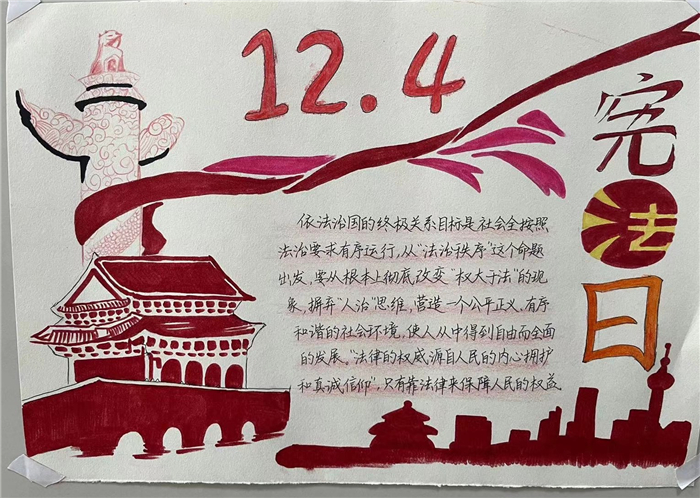 12.4
宪
法
日
依法治国的终极关系目标是社会全按照
法治要求有序运行,从“法治秩序”这个命题
出发,要从根本上彻底改变“权大于法”的现
象,摒弃“人治”思维,营造一个公平正义,有序
和谐的社会环境,使人从中得到自由而全面
的发展。“法律的权威源自人民的内心拥护
和真诚信仰”,只有靠法律来保障人民的权益